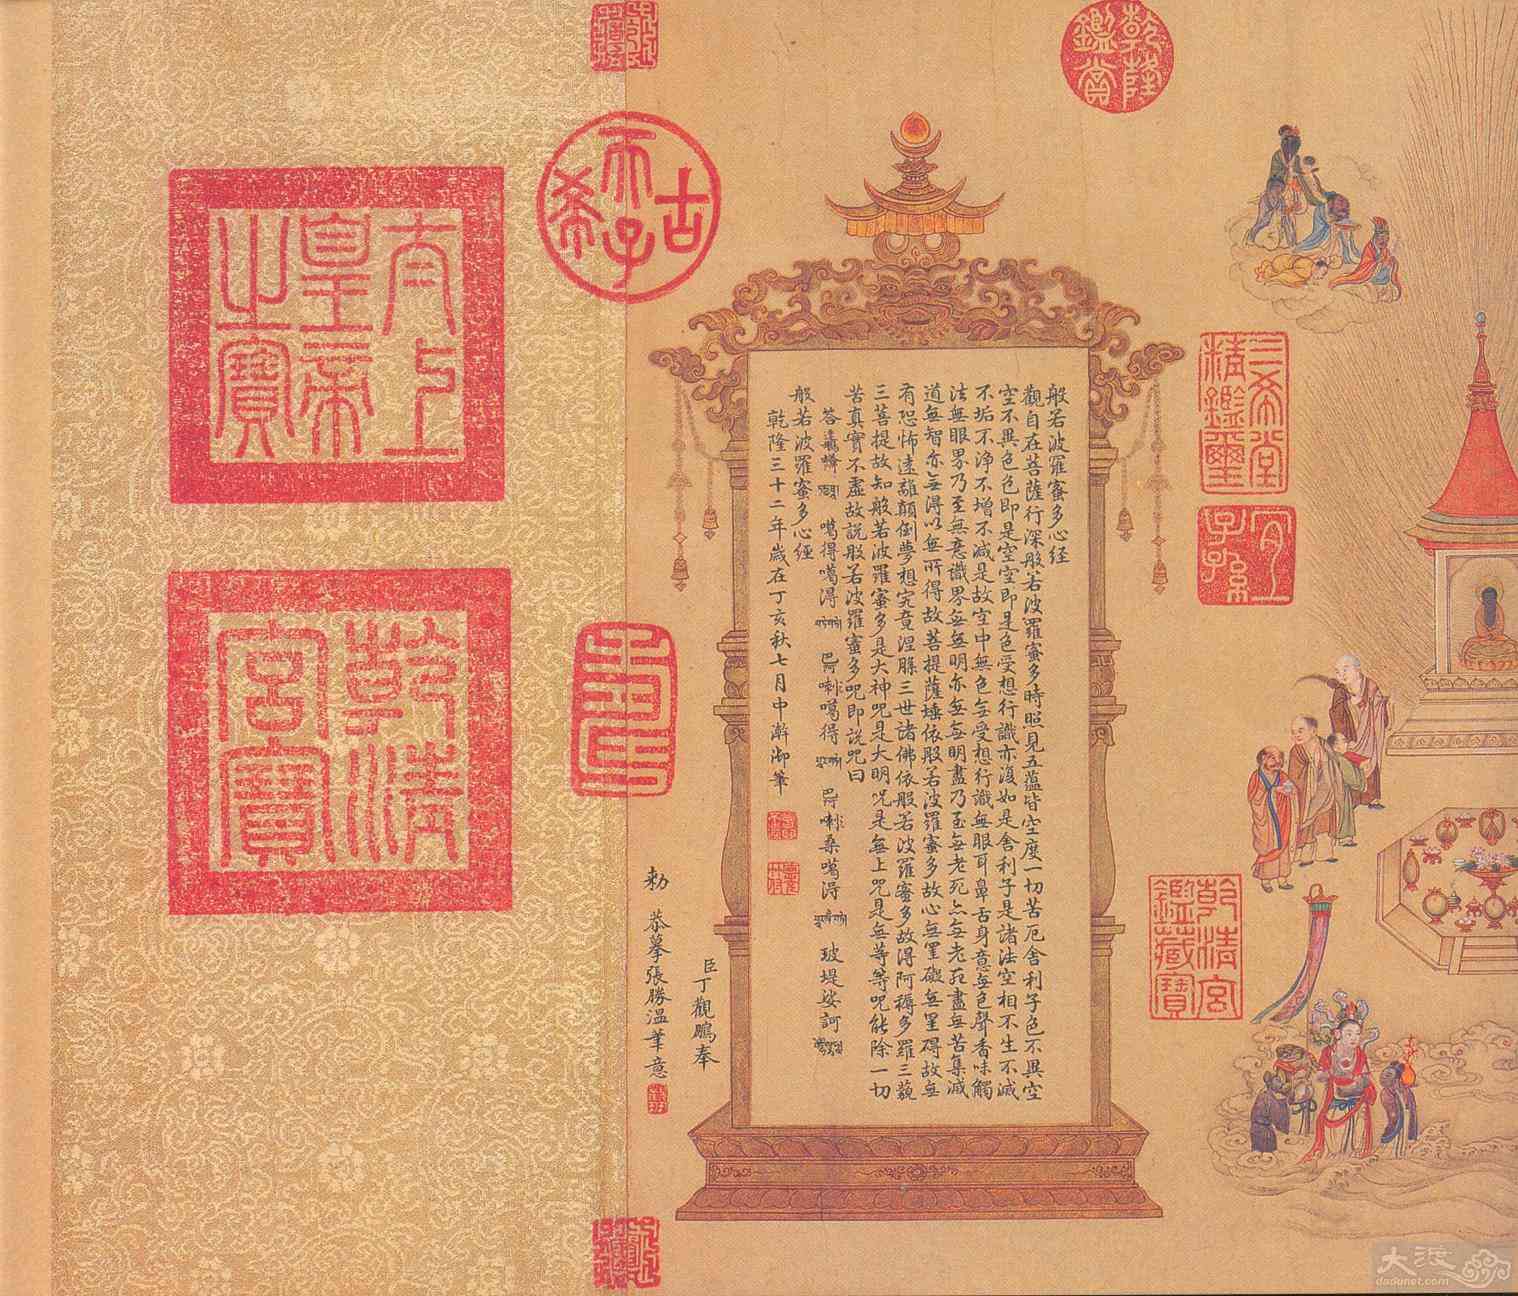 乾隆鑑賞
三希堂精鑑璽
宜子孫
乾清宮鑑藏寶
般若波羅蜜多心經
觀自在菩薩行深般若波羅蜜多時照見五蘊皆空度一切苦厄舍利子色不異空
空不異色色即是空空即是色受想行識亦復如是舍利子是諸法空相不生不滅
不垢不淨不增不減是故空中無色無受想行識無眼耳鼻舌身意無色聲香味觸
法無眼界乃至無意識界無無明亦無無明盡乃至無老死亦無老死盡無苦集滅
道無智亦無得以無所得故菩提薩埵依般若波羅蜜多故心無罣礙無罣碍故無
有恐怖遠離顛倒夢想究竟涅槃三世諸佛依般若波羅蜜多故得阿耨多羅三藐
三菩提故知般若波羅蜜多是大神呪是大明呪是無上呪是無等等呪能除一切
苦真實不虛故說般若波羅蜜多呪即說呪曰
答 噶得噶得 巴喇噶得 巴喇桑噶得 玻提娑訶
般若波羅蜜多心經
乾隆三十二年歲在丁亥秋七月中澣御筆
臣丁觀鵬奉
勅 恭摹張勝溫筆意
古希天子
壽
太上皇帝之寶
乾清宮寶
大渡
dadunet.com